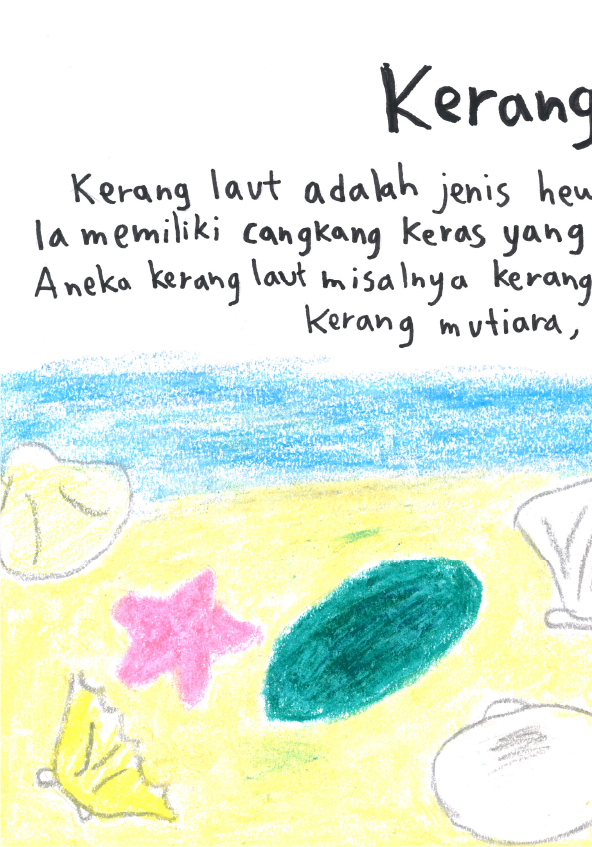 Kerang
Kerang laut adalah jenis
Ia memiliki cangkang keras yang
Aneka kerang laut misalnya kerang
kerang mutiara,